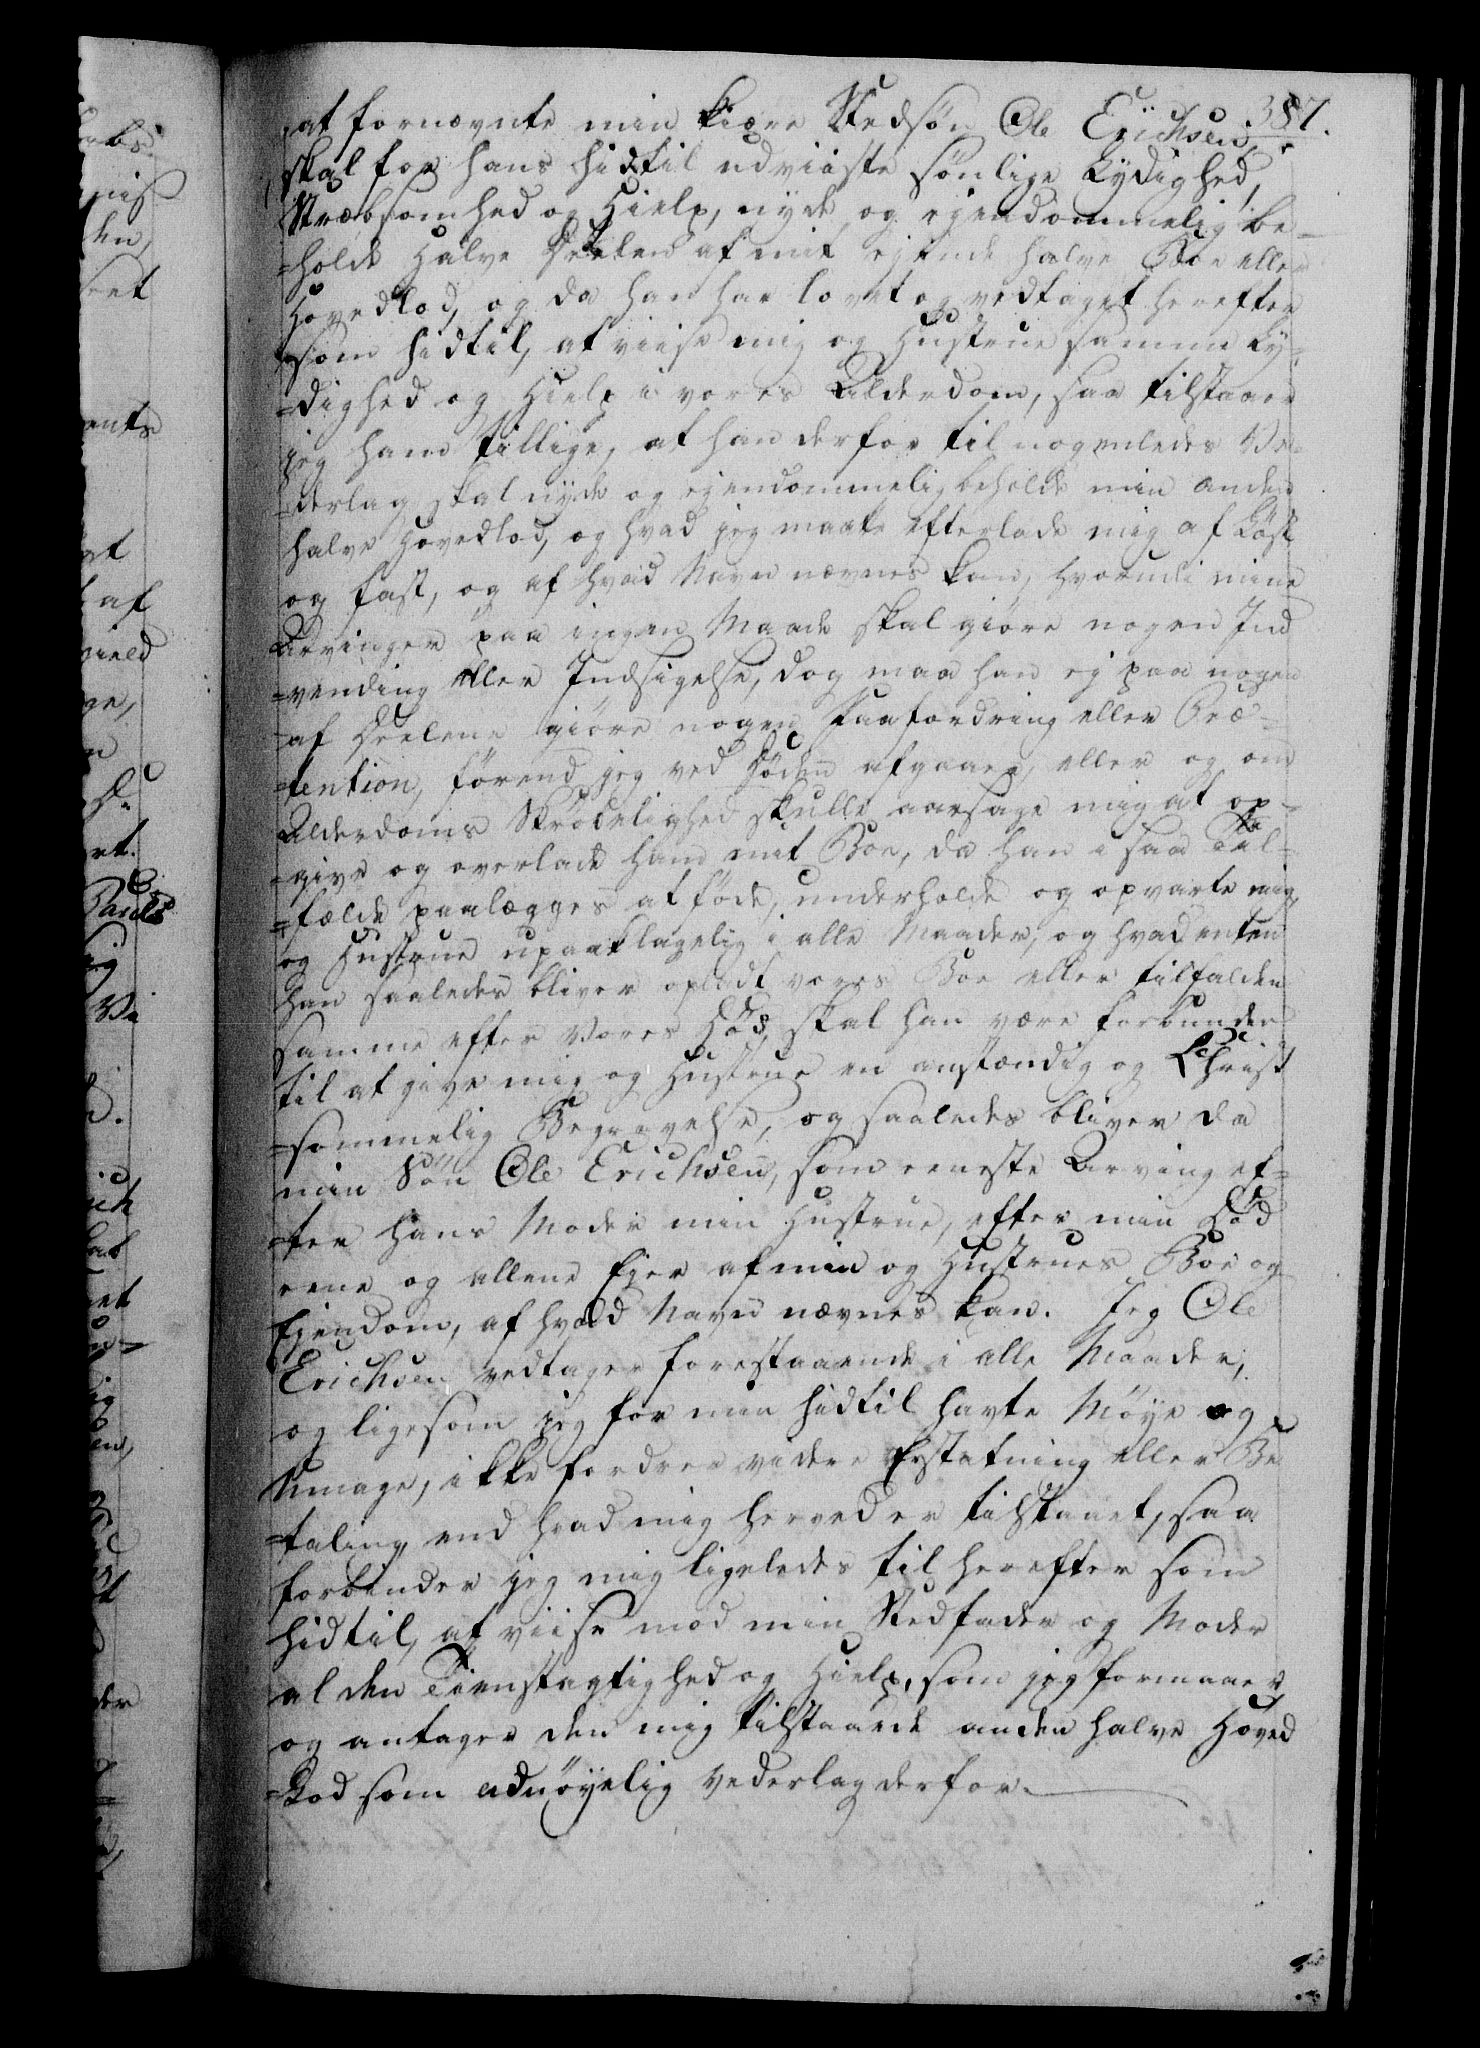 387.
at fornævnte min kiære Stedsøn Ole Erichsen,
skal for hans hidtil udviiste sønlige Lydighed,
Stræbsomhed og Hielp, nyde og ejendommelig be-
=holde halve Deelen af mit ejende halve Boe eller
Hovedlod, og da han har lovet og vedtaget herefter
som hidtil, at viise mig og Hustrue samme Ly-
=dighed og Hielp i vores Alderdom, saa tilstaaer
jeg ham tillige, at han derfor til nogenledes Ve-
=derlag skal nyde og ejendommelig beholde min anden
halve Hovedlod, og hvad jeg maate efterlade mig af Løst
og fast, og af hvad Navn nævnes kan, hvorudi mine
Arvinger paa ingen Maade skal giøre nogen Ind
=vending eller Indsigelse, dog maa han ej paa nogen
af Deelene giøre nogen Paafordring eller Præ-
=tention, førend jeg ved Døden afgaaer, eller og om
Alderdoms Skrøbelighed skulle aarsage mig at op-
=give og overlade ham mit Boe, da han i saa Til-
=fælde paalægges at føde, underholde og opvarte mig
og Hustrue upaaklagelig i alle Maader, og hvad enten
han saaledes bliver opladt vores Boe eller tilfalden
samme efter vores Død, skal han være forbunden
til at give mig og Hustrue en anstændig og Christ
=sommelig Begravelse, og saaledes bliver da
min Søn Ole Erichsen, som eeneste Arving ef-
=ter hans Moder min Hustrue, efter min Død
eene og allene Ejer af min og Hustrues Boe og
Ejendom, af hvad Navn nævnes kan. Jeg Ole
Erichsen vedtager forestaaende i alle Maader,
og ligesom jeg for min hidtil havte Møye og
Umage, ikke fordrer videre Erstatning eller Be
=taling, end hvad mig herved er tilstaaet, saa
forbinder jeg mig ligeledes til herefter som
hidtil, at viise mod min Stedfader og Moder
al den Tienstagtighed og Hielp, som jeg formaaer,
og antager den mig tilstaaede anden halve Hoved
=Lod som adnøyelig Vederlag derfor.